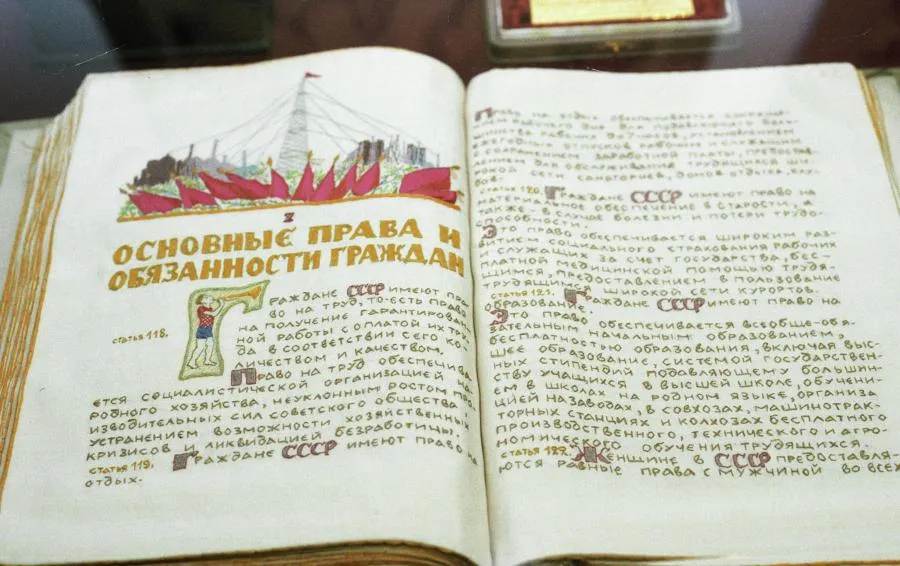 X
ОСНОВНЫЕ ПРАВА И
ОБЯЗАННОСТИ ГРАЖДАН
статья 118.
ГРАЖДАНЕ СССР ИМЕЮТ ПРА-
ВО НА ТРУД, ТО-ЕСТЬ ПРАВО
НА ПОЛУЧЕНИЕ ГАРАНТИРОВАН-
НОЙ РАБОТЫ С ОПЛАТОЙ ИХ ТРУ-
ДА В СООТВЕТСТВИИ С ЕГО КО-
ЛИЧЕСТВОМ И КАЧЕСТВОМ.
ПРАВО НА ТРУД ОБЕСПЕЧИВА-
ЕТСЯ СОЦИАЛИСТИЧЕСКОЙ ОРГАНИЗАЦИЕЙ НА-
РОДНОГО ХОЗЯЙСТВА, НЕУКЛОННЫМ РОСТОМ ПРО-
ИЗВОДИТЕЛЬНЫХ СИЛ СОВЕТСКОГО ОБЩЕСТВА,
УСТРАНЕНИЕМ ВОЗМОЖНОСТИ ХОЗЯЙСТВЕННЫХ
КРИЗИСОВ И ЛИКВИДАЦИЕЙ БЕЗРАБОТИЦЫ.
статья 119. ГРАЖДАНЕ СССР ИМЕЮТ ПРАВО НА
ОТДЫХ.
ПРАВО НА ОТДЫХ ОБЕСПЕЧИВАЕТСЯ СОКРАЩЕ-
НИЕМ РАБОЧЕГО ДНЯ ДЛЯ ПОДАВЛЯЮЩЕГО БОЛЬ-
ШИНСТВА РАБОЧИХ ДО 7 ЧАСОВ, УСТАНОВЛЕНИЕМ
ЕЖЕГОДНЫХ ОТПУСКОВ РАБОЧИМ И СЛУЖАЩИМ
С СОХРАНЕНИЕМ ЗАРАБОТНОЙ ПЛАТЫ, ПРЕДОСТАВ-
ЛЕНИЕМ ДЛЯ ОБСЛУЖИВАНИЯ ТРУДЯЩИХСЯ ШИ-
РОКОЙ СЕТИ САНАТОРИЕВ, ДОМОВ ОТДЫХА, КЛУ-
БОВ.
статья 120. ГРАЖДАНЕ СССР ИМЕЮТ ПРАВО НА
МАТЕРИАЛЬНОЕ ОБЕСПЕЧЕНИЕ В СТАРОСТИ, А
ТАКЖЕ - В СЛУЧАЕ БОЛЕЗНИ И ПОТЕРИ ТРУДО-
СПОСОБНОСТИ.
ЭТО ПРАВО ОБЕСПЕЧИВАЕТСЯ ШИРОКИМ РАЗ-
ВИТИЕМ СОЦИАЛЬНОГО СТРАХОВАНИЯ РАБОЧИХ
И СЛУЖАЩИХ ЗА СЧЕТ ГОСУДАРСТВА, БЕС-
ПЛАТНОЙ МЕДИЦИНСКОЙ ПОМОЩЬЮ ТРУДЯ-
ЩИМСЯ, ПРЕДОСТАВЛЕНИЕМ В ПОЛЬЗОВАНИЕ
ТРУДЯЩИМСЯ ШИРОКОЙ СЕТИ КУРОРТОВ.
статья 121. ГРАЖДАНЕ СССР ИМЕЮТ ПРАВО НА
ОБРАЗОВАНИЕ.
ЭТО ПРАВО ОБЕСПЕЧИВАЕТСЯ ВСЕОБЩЕ-ОБЯ-
ЗАТЕЛЬНЫМ НАЧАЛЬНЫМ ОБРАЗОВАНИЕМ,
БЕСПЛАТНОСТЬЮ ОБРАЗОВАНИЯ, ВКЛЮЧАЯ ВЫС-
ШЕЕ ОБРАЗОВАНИЕ, СИСТЕМОЙ ГОСУДАРСТВЕН-
НЫХ СТИПЕНДИЙ ПОДАВЛЯЮЩЕМУ БОЛЬШИН-
СТВУ УЧАЩИХСЯ В ВЫСШЕЙ ШКОЛЕ, ОБУЧЕНИ-
ЕМ В ШКОЛАХ НА РОДНОМ ЯЗЫКЕ, ОРГАНИЗА
ЦИЕЙ НА ЗАВОДАХ, В СОВХОЗАХ, МАШИНОТРАК-
ТОРНЫХ СТАНЦИЯХ И КОЛХОЗАХ БЕСПЛАТНОГО
ПРОИЗВОДСТВЕННОГО, ТЕХНИЧЕСКОГО И АГРО-
НОМИЧЕСКОГО ОБУЧЕНИЯ ТРУДЯЩИХСЯ.
статья 122. ЖЕНЩИНЕ В СССР ПРЕДОСТАВЛЯ-
ЮТСЯ РАВНЫЕ ПРАВА С МУЖЧИНОЙ ВО ВСЕХ